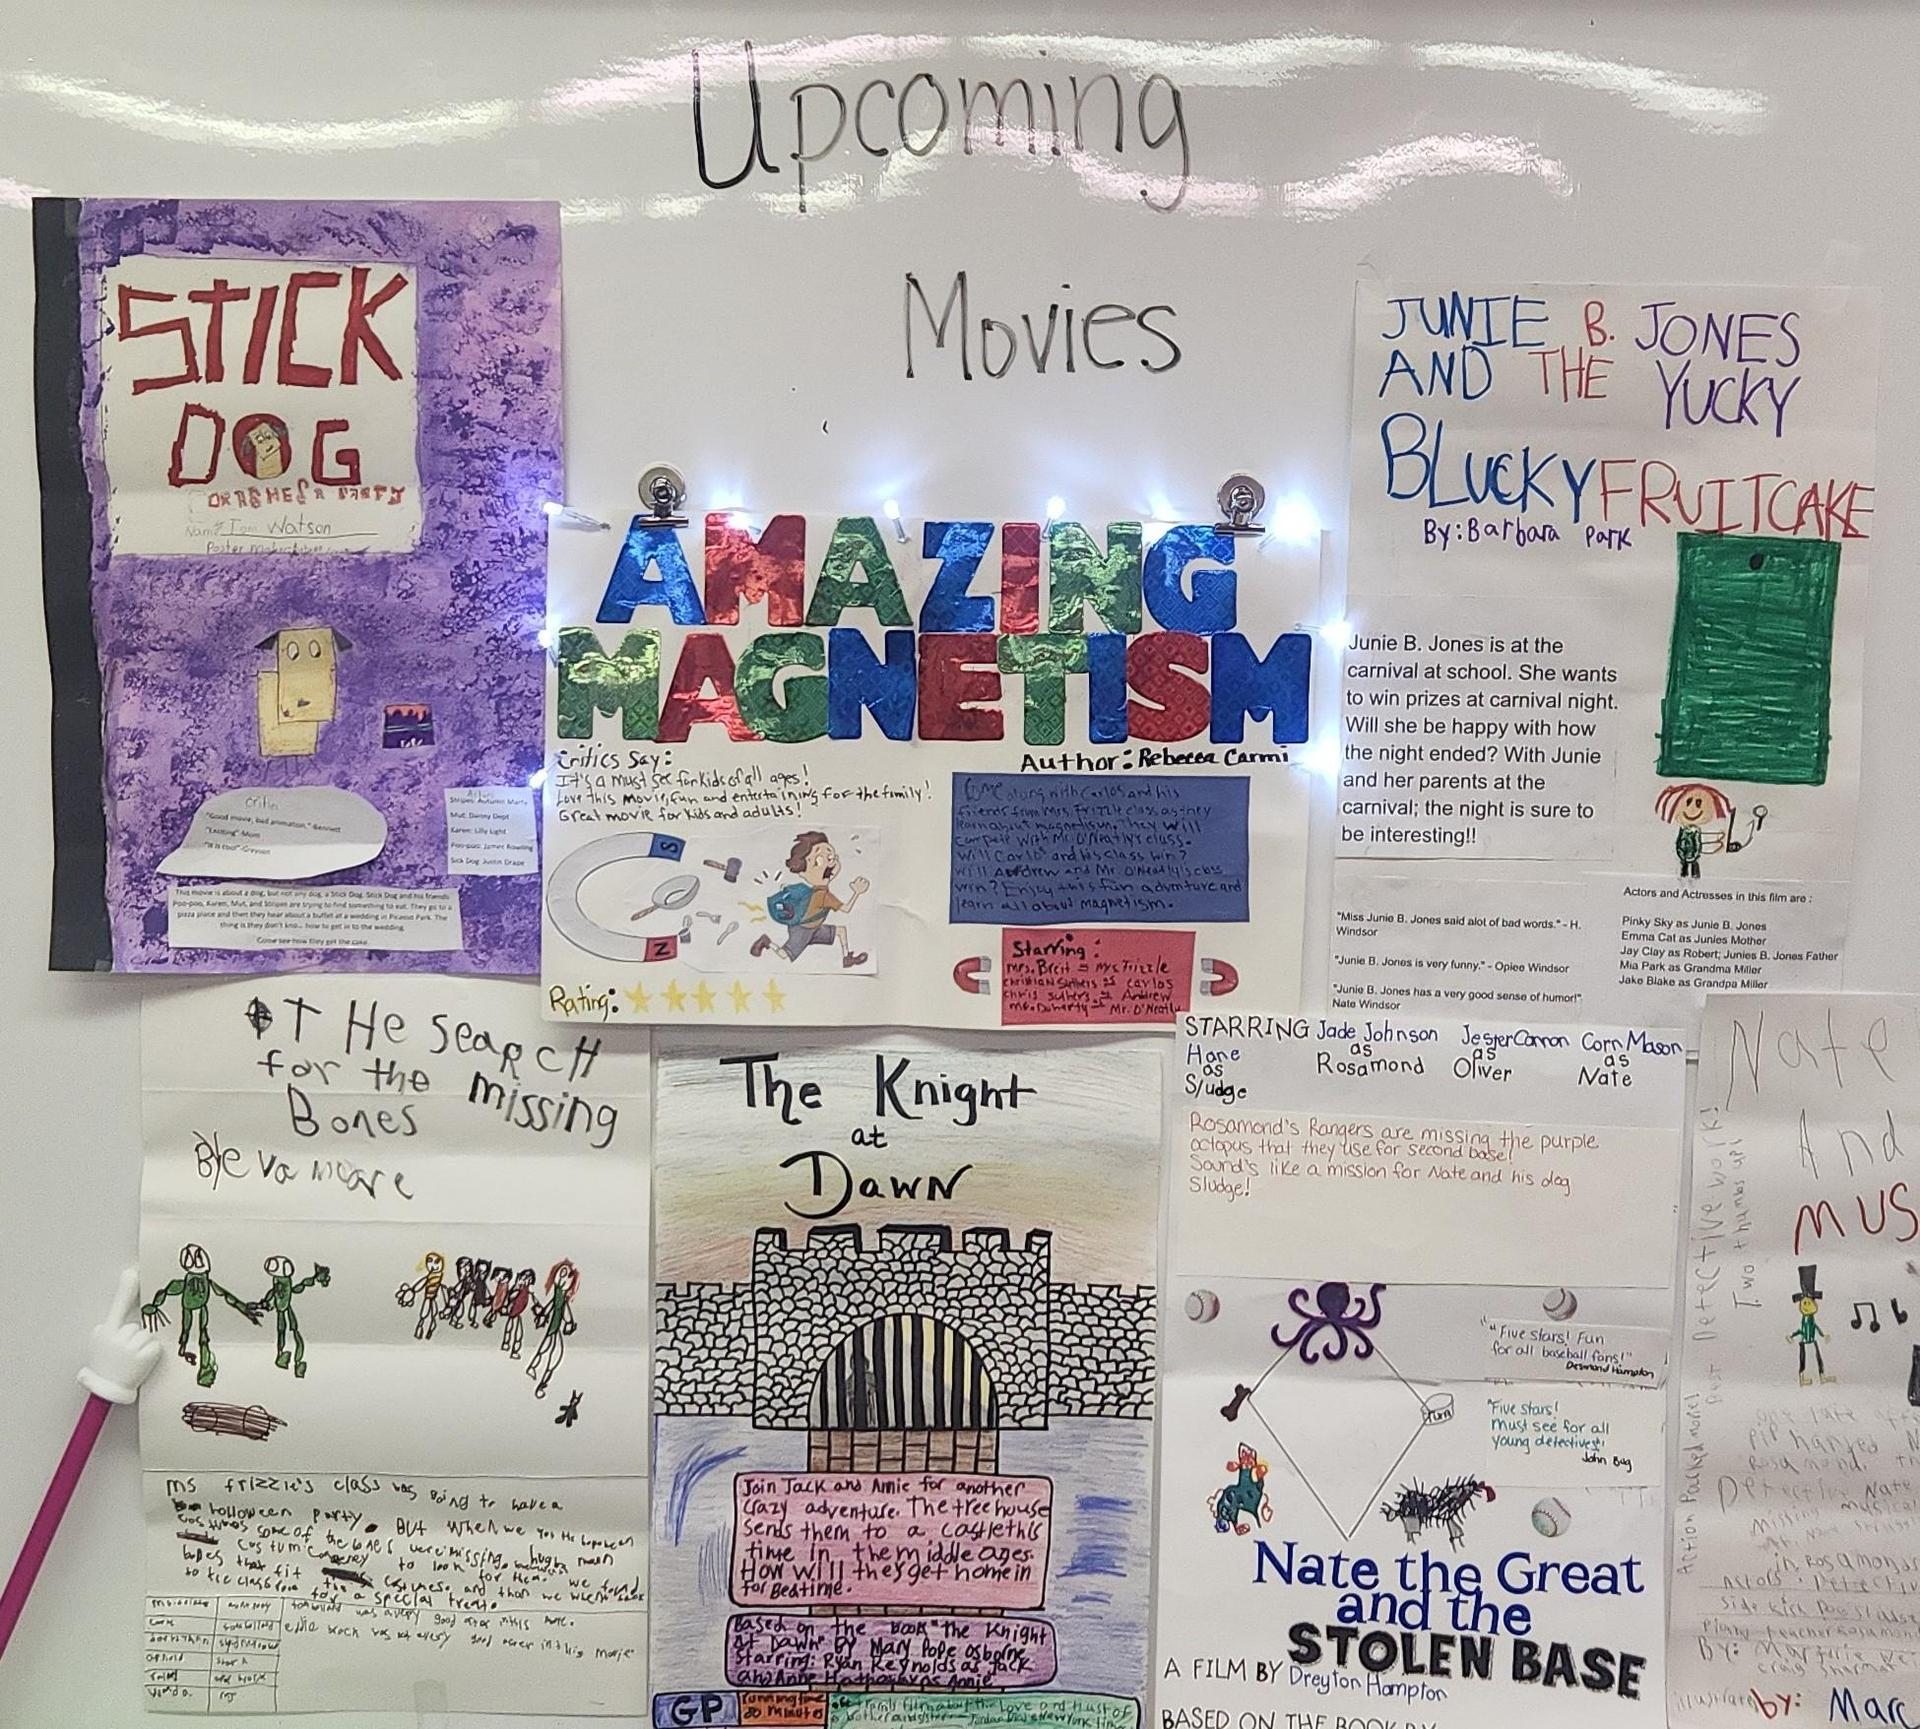 Upcoming
Movies
STICK
DOG
CRASHES A PARTY
Watson
Critics
"Good movie, bad animation." -Bennett
"Exciting" -Mom
"It is cool" -Greyson
Mut: Danny Dept
Karen: Lilly Light
Poo-poo: James Rowling
Sick Dog: Justin Drape
This movie is about a dog, but not any dog, a Stick Dog. Stick Dog and his friends
Poo-poo, Karen, Mut, and Stripes are trying to find something to eat. They go to a
pizza place and then they hear about a buffet at a wedding in Picasso Park. The
thing is they don't kno... how to get in to the wedding.
Come see how they get the cake.
AMAZING
MAGNETISM
Critics Say:
It's a must see for kids of all ages!
Love this movie, fun and entertaining for the family!
Great movie for kids and adults!
Author: Rebecca Carmi
Come along with Carlos and his
friends from Mrs. Frizzle class as they
learn about magnetism. They will
compete with Mr. O'Neatly's class.
Will Carlos and his class win?
Will Andrew and Mr. O'Neatly's class
win? Enjoy this fun adventure and
learn all about magnetism.
S
N
Starring:
Mrs. Breit = Mrs Frizzle
Christian Suthers = Carlos
Chris Suthers = Andrew
Mr. Doherty = Mr. O'Neatly
Rating:
JUNIE B. JONES
AND THE YUCKY
BLUCKY FRUITCAKE
By: Barbara Park
Junie B. Jones is at the
carnival at school. She wants
to win prizes at carnival night.
Will she be happy with how
the night ended? With Junie
and her parents at the
carnival; the night is sure to
be interesting!!
"Miss Junie B. Jones said alot of bad words." - H.
Windsor
"Junie B. Jones is very funny." - Opiee Windsor
"Junie B. Jones has a very good sense of humor!"
Nate Windsor
Actors and Actresses in this film are :
Pinky Sky as Junie B. Jones
Emma Cat as Junies Mother
Jay Clay as Robert; Junies B. Jones Father
Mia Park as Grandma Miller
Jake Blake as Grandpa Miller
THe search
for the missing
Bones
By eva moore
ms frizzle's class was going to have a
holloween party. But when we
some of the bones were missing.
to look for them. we found
bones that fit the costumes. and than we went back
to the classroom for a special treat.
was a very good actor in this movie.
The Knight
at
Dawn
Join Jack and Annie for another
crazy adventure. The treehouse
sends them to a castle this
time in the middle ages.
How will they get home in
for Bedtime.
Based on the book "the Knight
at Dawn" by Mary Pope Osborne
Starring: Ryan Reynolds as Jack
and Anne Hathaway as Annie
GP
Running time
80 minutes
STARRING Jade Johnson as Rosamond
Jester Cannon as Oliver
Corn Mason as Nate
Hane as Sludge
Rosamond's Rangers are missing the purple
octopus that they use for second base!
Sound's like a mission for Nate and his dog
Sludge!
"Five stars! Fun
for all baseball fans!"
Desmond Hampton
"Five stars!
must see for all
young detectives!"
John Bug
Nate the Great
and the
STOLEN BASE
A FILM BY Dreyton Hampton
BASED ON THE BOOK BY
Nate
And
MUS
Detective work!
Two thumbs up!
Action Packed movie!
by: Marc